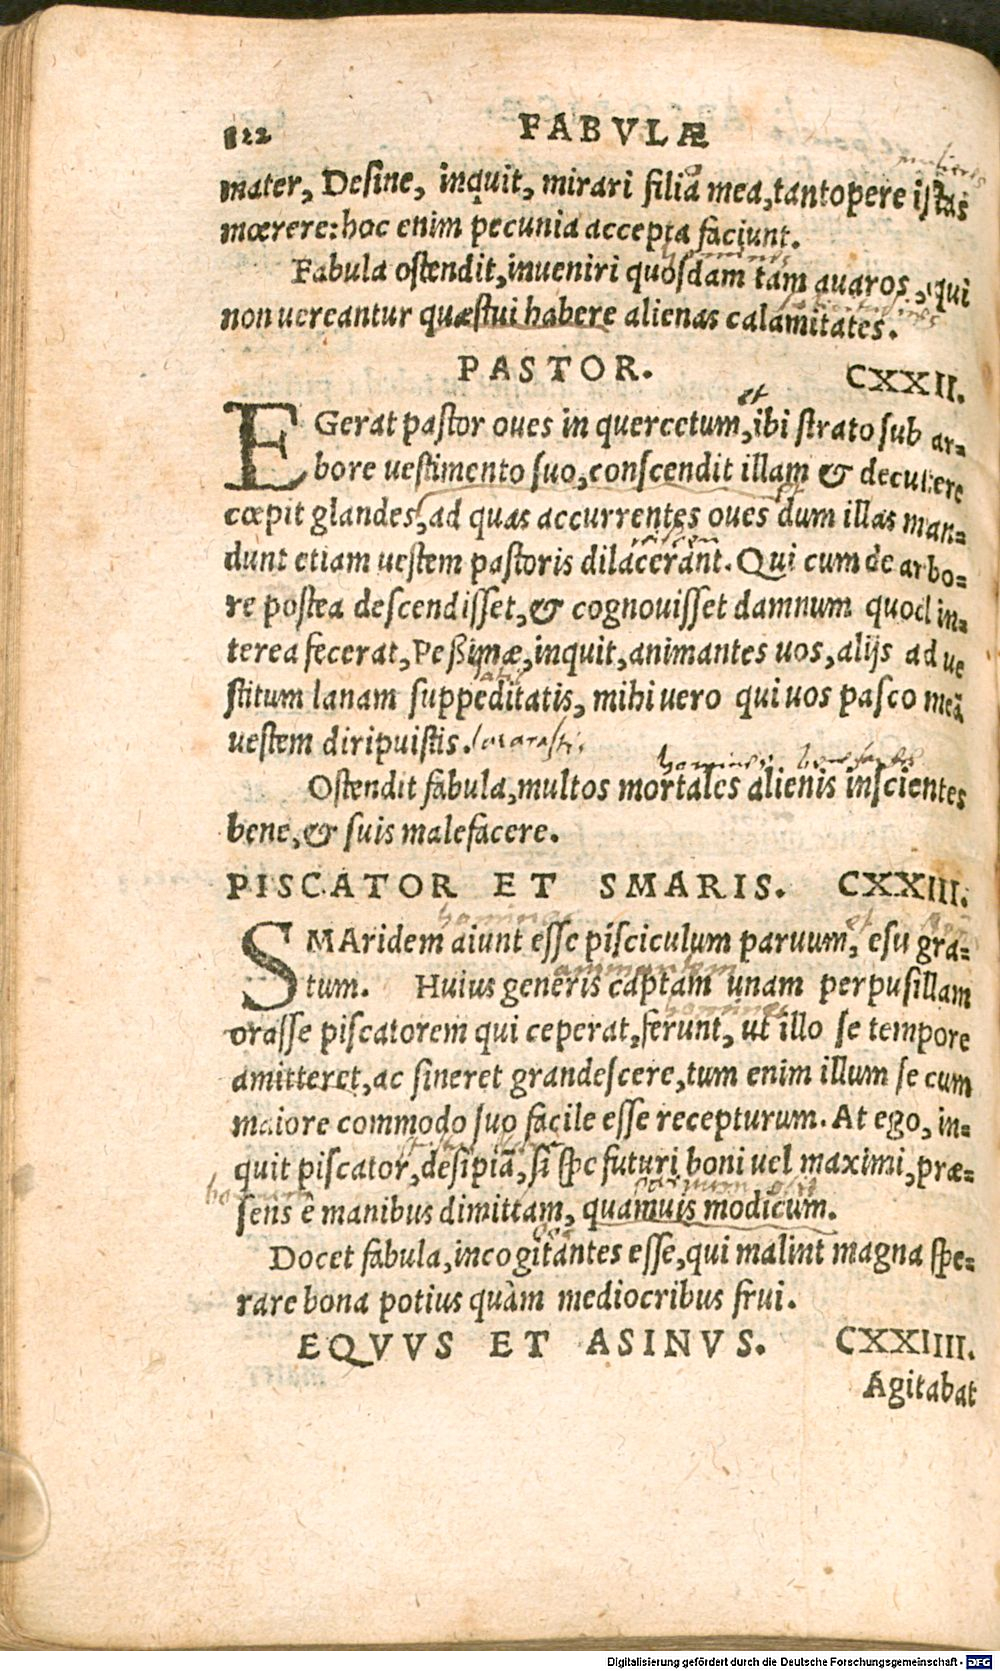 122 FABVLÆ
mulieres
mater, Desine, inquit, mirari filia mea, tantopere istas
mœrere: hoc enim pecunia accepta faciunt.
homines
Fabula ostendit, inueniri quosdam tam auaros, qui
non uereantur quæstui habere alienas calamitates.
PASTOR. CXXII.
et
EGerat pastor oues in quercetum, ibi strato sub ar-
bore uestimento suo, conscendit illam & decutere
cœpit glandes, ad quas accurrentes oues dum illas man-
dunt etiam uestem pastoris dilacerant. Qui cum de arbo-
re postea descendisset, & cognouisset damnum quod in-
terea fecerat, Peßimæ, inquit, animantes uos, alijs ad ue
stitum lanam suppeditatis, mihi uero qui uos pasco meã
uestem diripuistis. lacerastis
homines
Ostendit fabula, multos mortales alienis inscientes
bene, & suis malefacere.
PISCATOR ET SMARIS. CXXIII.
homines et
SMAridem aiunt esse pisciculum paruum, esu gra-
animantem
tum. Huius generis captam unam perpusillam
homines
orasse piscatorem qui ceperat, ferunt, ut illo se tempore
amitteret, ac sineret grandescere, tum enim illum se cum
maiore commodo suo facile esse recepturum. At ego, in-
quit piscator, desipiã, si spe futuri boni uel maximi, præ-
paruum sit
sens e manibus dimittam, quamuis modicum.
Docet fabula, incogitantes esse, qui malint magna spe-
rare bona potius quàm mediocribus frui.
EQVVS ET ASINVS. CXXIIII.
Agitabat
Digitalisierung gefördert durch die Deutsche Forschungsgemeinschaft - DFG